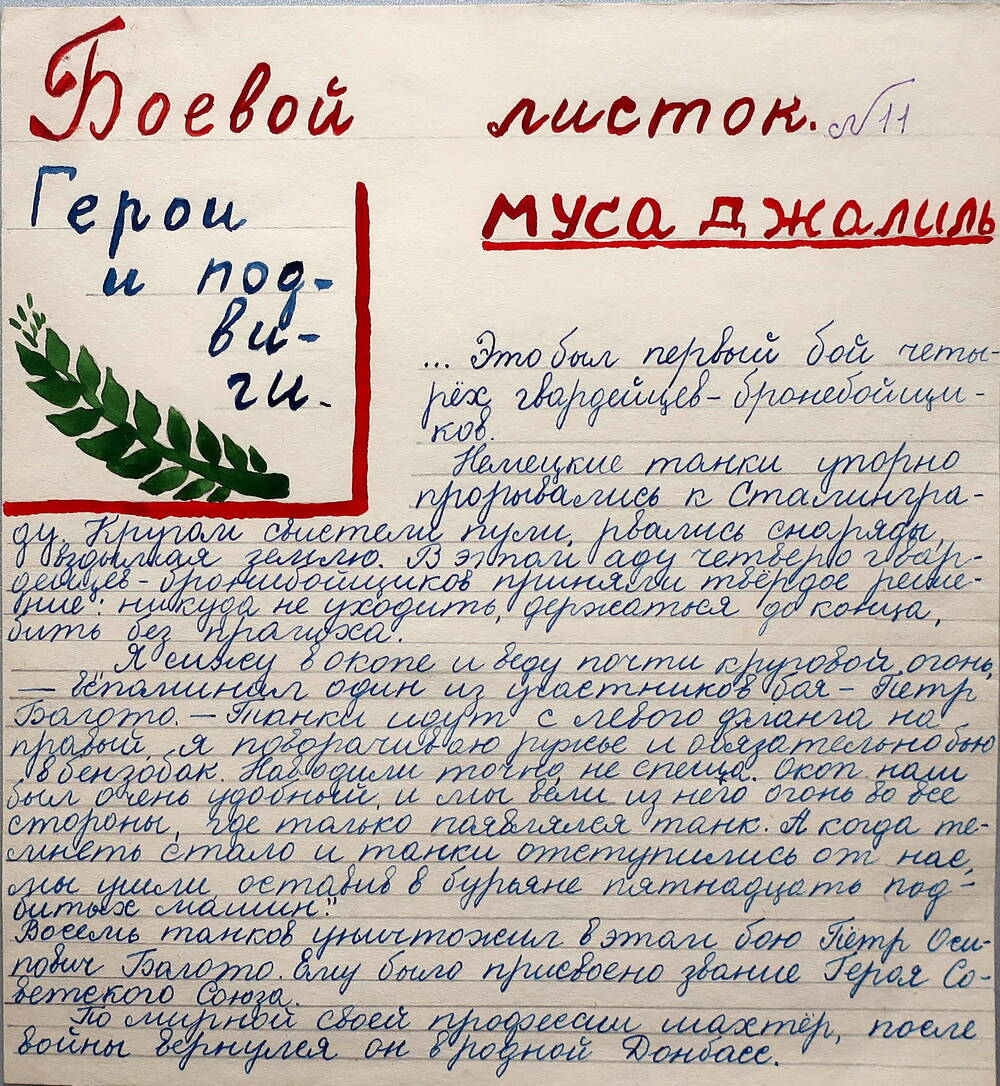 Боевой листок. №11
Герои
и под-
ви-
ги.
МУСА ДЖАЛИЛЬ
... Это был первый бой четы-
рёх гвардейцев-бронебойщи-
ков.
Немецкие танки упорно
прорывались к Сталингра-
ду. Кругом свистели пули, рвались снаряды,
вздымая землю. В этом аду четверо гвар-
дейцев-бронебойщиков приняли твёрдое реше-
ние: никуда не уходить, держаться до конца,
бить без промаха.
"Я сижу в окопе и веду почти круговой огонь,
— вспоминал один из участников боя – Пётр
Болото. – Танки идут с левого фланга на
правый, я поворачиваю ружьё и обязательно бью
в бензобак. Наводили точно, не спеша. Окоп наш
был очень удобный, и мы вели из него огонь во все
стороны, где только появлялся танк. А когда те-
мнеть стало и танки отступились от нас,
мы ушли, оставив в бурьяне пятнадцать под-
битых машин."
Восемь танков уничтожил в этом бою Пётр Оси-
пович Болото. Ему было присвоено звание Героя Со-
ветского Союза.
По мирной своей профессии шахтёр, после
войны вернулся он в родной Донбасс.